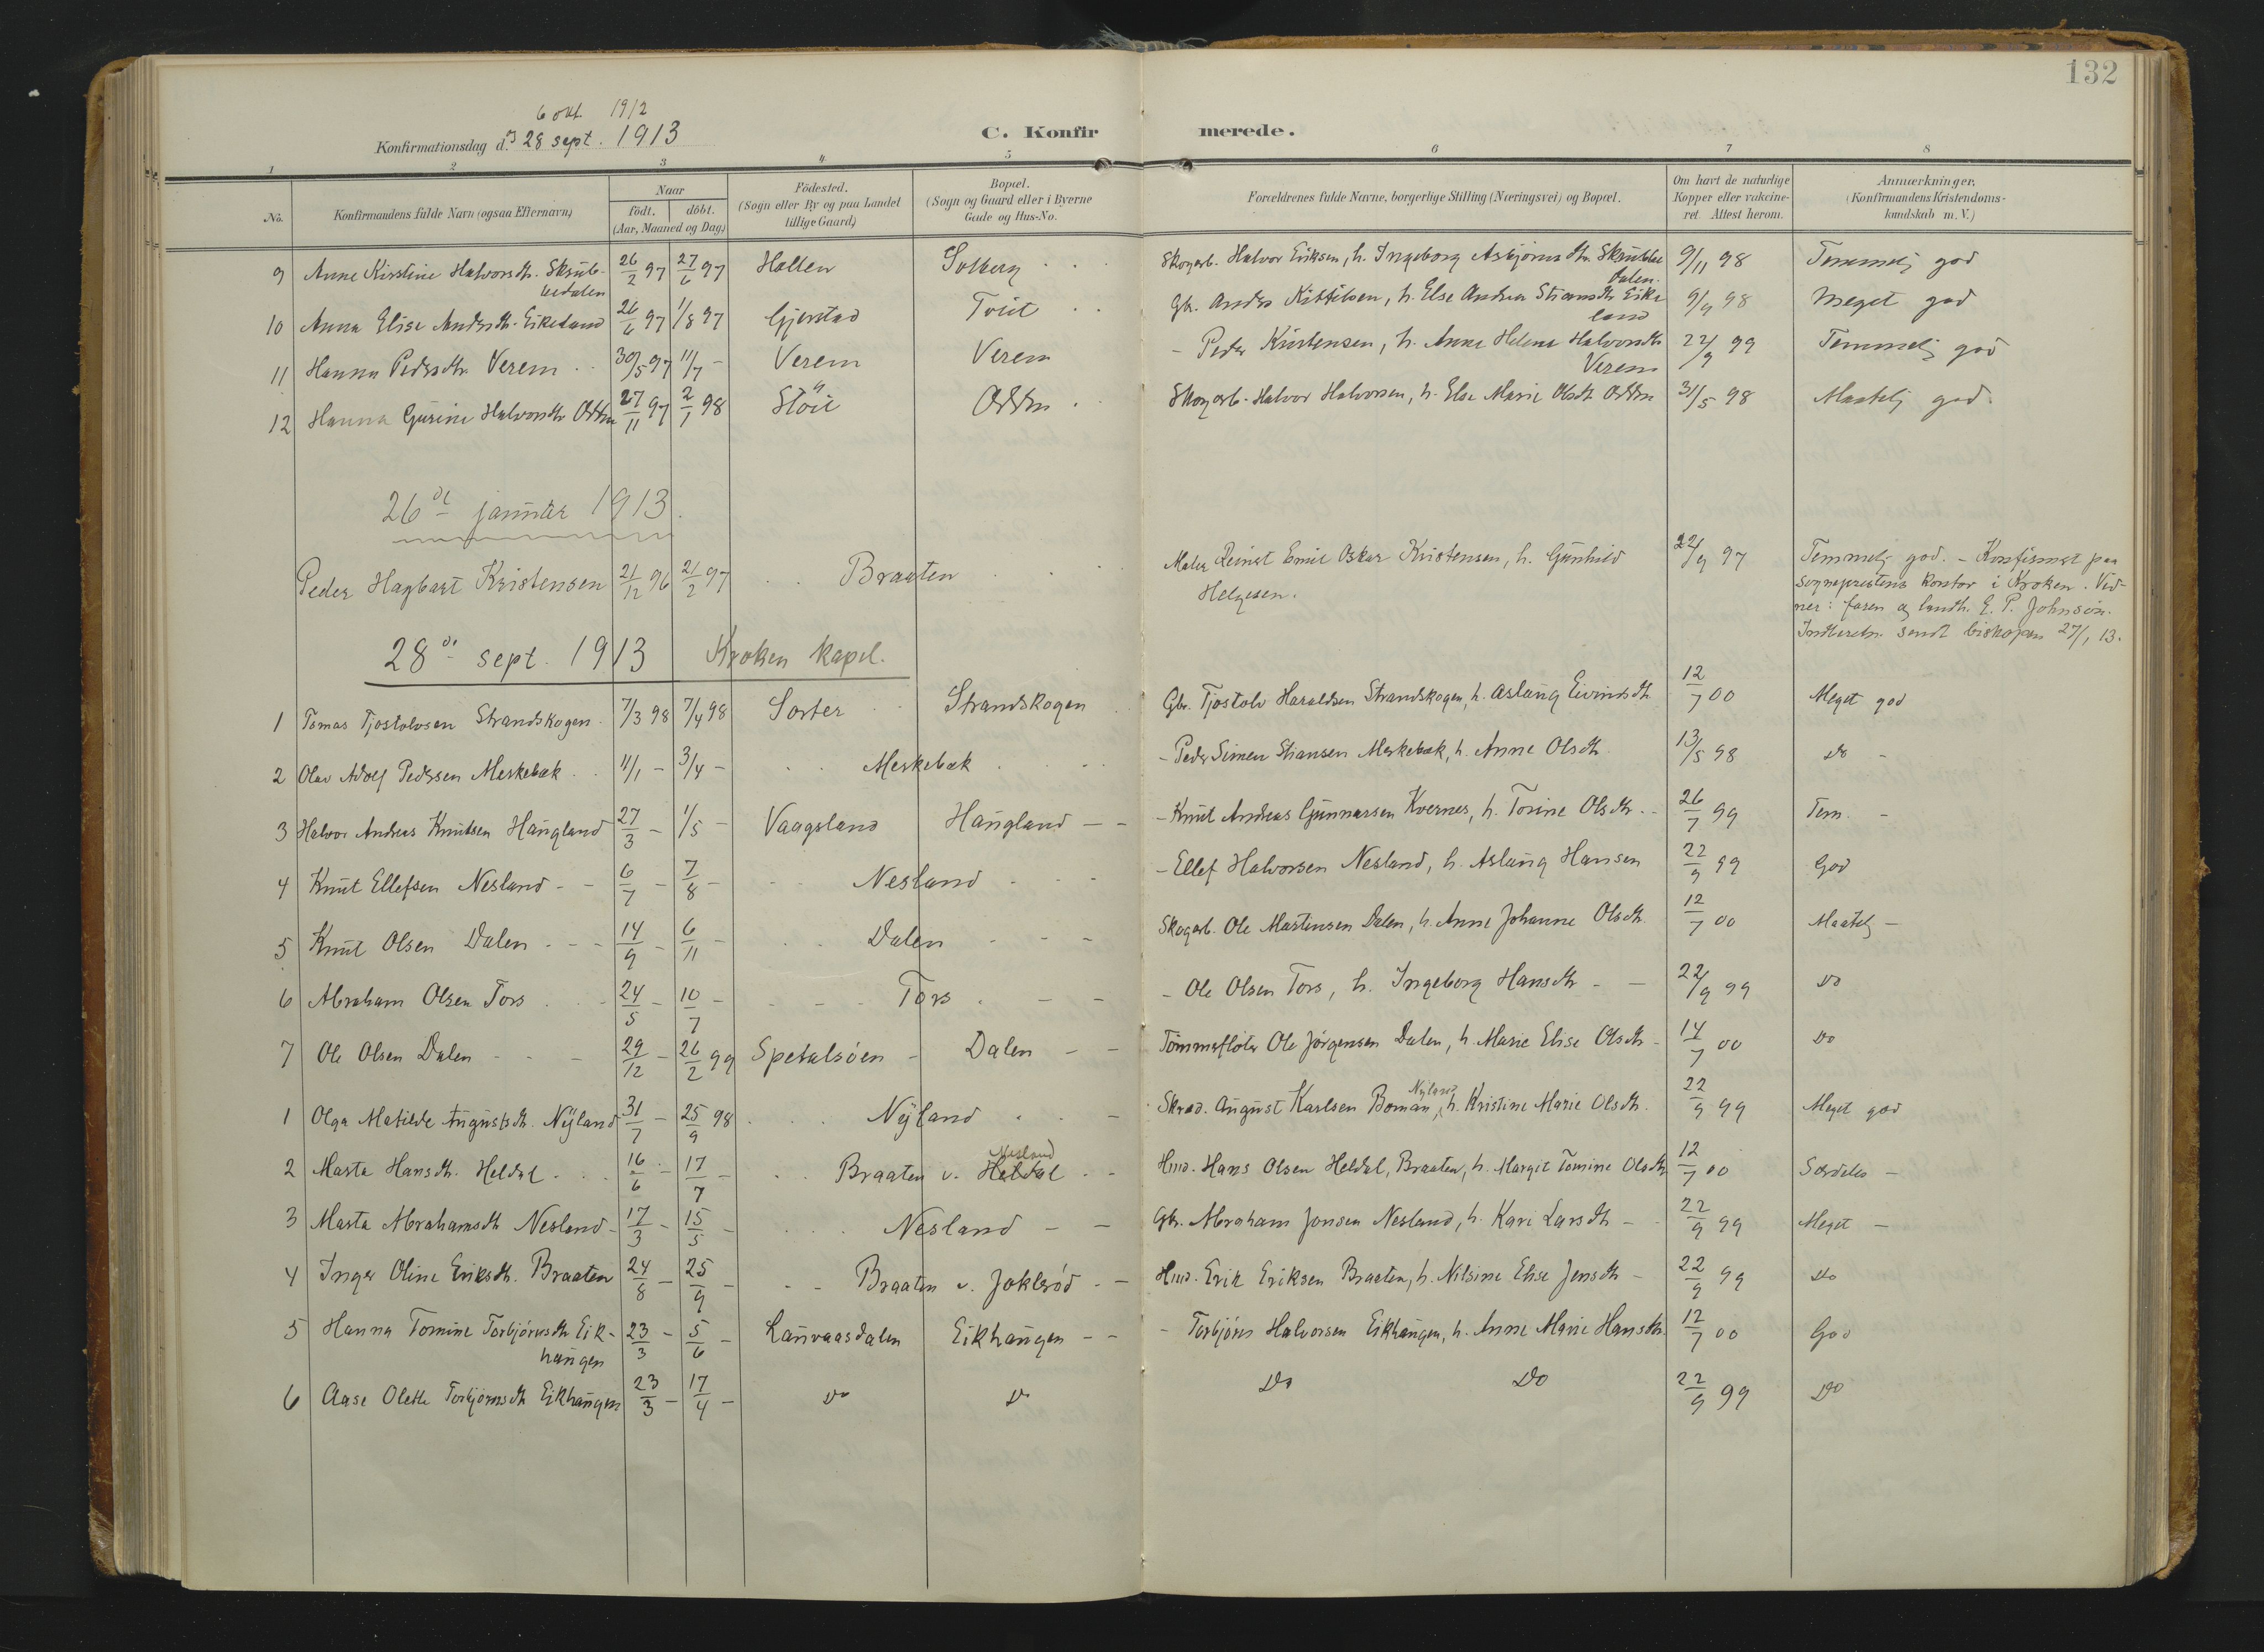 132
6 okt. 1912
Konfirmationsdag d. 28 sept. 1913
C. Konfirmerede.
1 2 3 4 5 6 7 8
No.
Konfirmandens fulde Navn (ogsaa Efternavn)
Naar
födt. döbt.
(Aar, Maaned og Dag)
Födested.
(Sogn eller By og paa Landet
tillige Gaard)
Bopæl.
(Sogn og Gaard eller i Byerne
Gade og Hus-No.
Forældrenes fulde Navne, borgerlige Stilling (Næringsvei) og Bopæl.
Om havt de naturlige
Kopper eller vakcine-
ret Attest herom.
Anmærkninger,
(Konfirmandens Kristendoms-
kundskab m.V.)
9 Anne Kirstine Halvorsdtr. 26/2 97 27/6 97 Holten Solberg Skogarb. Halvor Eriksen, h. Ingeborg Asbjørnsdtr. 9/11 98 Temmelig god
dalen.
10 Anna Elise Andersdtr. Eikeland 26/6 97 1/8 97 Gjerstad Tveit Gbr. Anders Kittilsen, h. Else Andrea Stiansdtr. Eike 9/9 98 Meget god
land
11 Hanna Pedersdtr. Verem 30/5 97 11/7 - Verem Verem - Peder Kristensen, h. Anne Helene Halvorsdtr. 22/9 99 Temmelig god
Verem
12 Hanna Gurine Halvorsdtr. 27/11 97 2/1 98 Skogarb. Halvor Halvorsen, h. Else Marie Olsdtr. 31/5 98 Maatelig god
26de januar 1913.
Peder Hagbart Kristensen 21/12 96 21/2 97 Braaten Maler Reinert Emil Oskar Kristensen, h. Gunhild 22/9 97 Temmelig god. - Konfirmert paa
Helgesen. sogneprestens kontor i Kroken. Vid-
ner: faren og landh. E. P. Johnsen.
Indberetn. sendt biskopen 27/1 13.
28de sept. 1913 Kroken kapel.
1 Tomas Tjostolvsen Strandskogen 7/3 98 7/4 98 Sorter Strandskogen Gbr. Tjostolv Haraldsen Strandskogen, h. Aslaug Eivindsdtr. 12/7 00 Meget god
2 Olav Adolf Pedersen Merkebæk 11/1 - 3/4 - Merkebæk - Peder Simen Stiansen Merkebæk, h. Anne Olsdtr. 13/5 98 Do -
3 Halvor Andreas Knutsen Haugland 27/3 - 1/5 - Vaagsland Haugland - - - Knut Andreas Gunnarsen Kvernes, h. Torine Olsdtr. 26/7 99 Tem. -
4 Knut Ellefsen Nesland - - 6/7 - 7/8 - Nesland - Ellef Halvorsen Nesland, h. Aslaug Hansen 22/9 99 God
5 Knut Olsen Dalen - - - 14/9 - 6/11 - Dalen - - - Skogarb. Ole Martinsen Dalen, h. Anne Johanne Olsdtr. 12/7 00 Maatelig -
6 Abraham Olsen Tors 24/5 - 10/7 - Tors - - - Ole Olsen Tors, h. Ingeborg Hansdtr. - - 22/9 99 Do
7 Ole Olsen Dalen - - - 29/12 - 26/2 99 Spetalsöen - Dalen - - Tømmerfløter Ole Jørgensen Dalen, h. Marie Elise Olsdtr. - 14/7 00 Do
Nyland
1 Olga Matilde Augustsdtr. Nyland 31/7 - 25/9 98 Nyland - Skræd. August Karlsen Boman, h. Kristine Marie Olsdtr. 22/9 99 Meget god
Nesland
2 Marta Hansdtr. Heldal 16/6 - 17/7 - Braaten u. Heldal - - Hmd. Hans Olsen Heldal, Braaten, h. Margit Tomine Olsdtr. 12/7 00 Særdeles -
3 Marta Abrahamsdtr. Nesland - 17/3 - 15/5 - Nesland - - Gbr. Abraham Jonsen Nesland, h. Kari Larsdtr. - 22/9 99 Meget -
4 Inger Oline Eriksdtr. Braaten 24/8 - 25/9 - Braaten u. Joklerød - - Hmd. Erik Eriksen Braaten, h. Nilsine Elise Jensdtr. - 22/9 99 Do
5 Hanna Tomine Torbjørnsdtr. Eik- 23/3 - 5/6 - Lauvaasdalen Eikhaugen - - - Torbjørn Halvorsen Eikhaugen, h. Anne Marie Hansdtr. 12/7 00 God
haugen
6 Aase Olette Torbjørnsdtr. Eikhaugen 23/3 - 17/4 - Do Do Do Do 22/9 99 Do